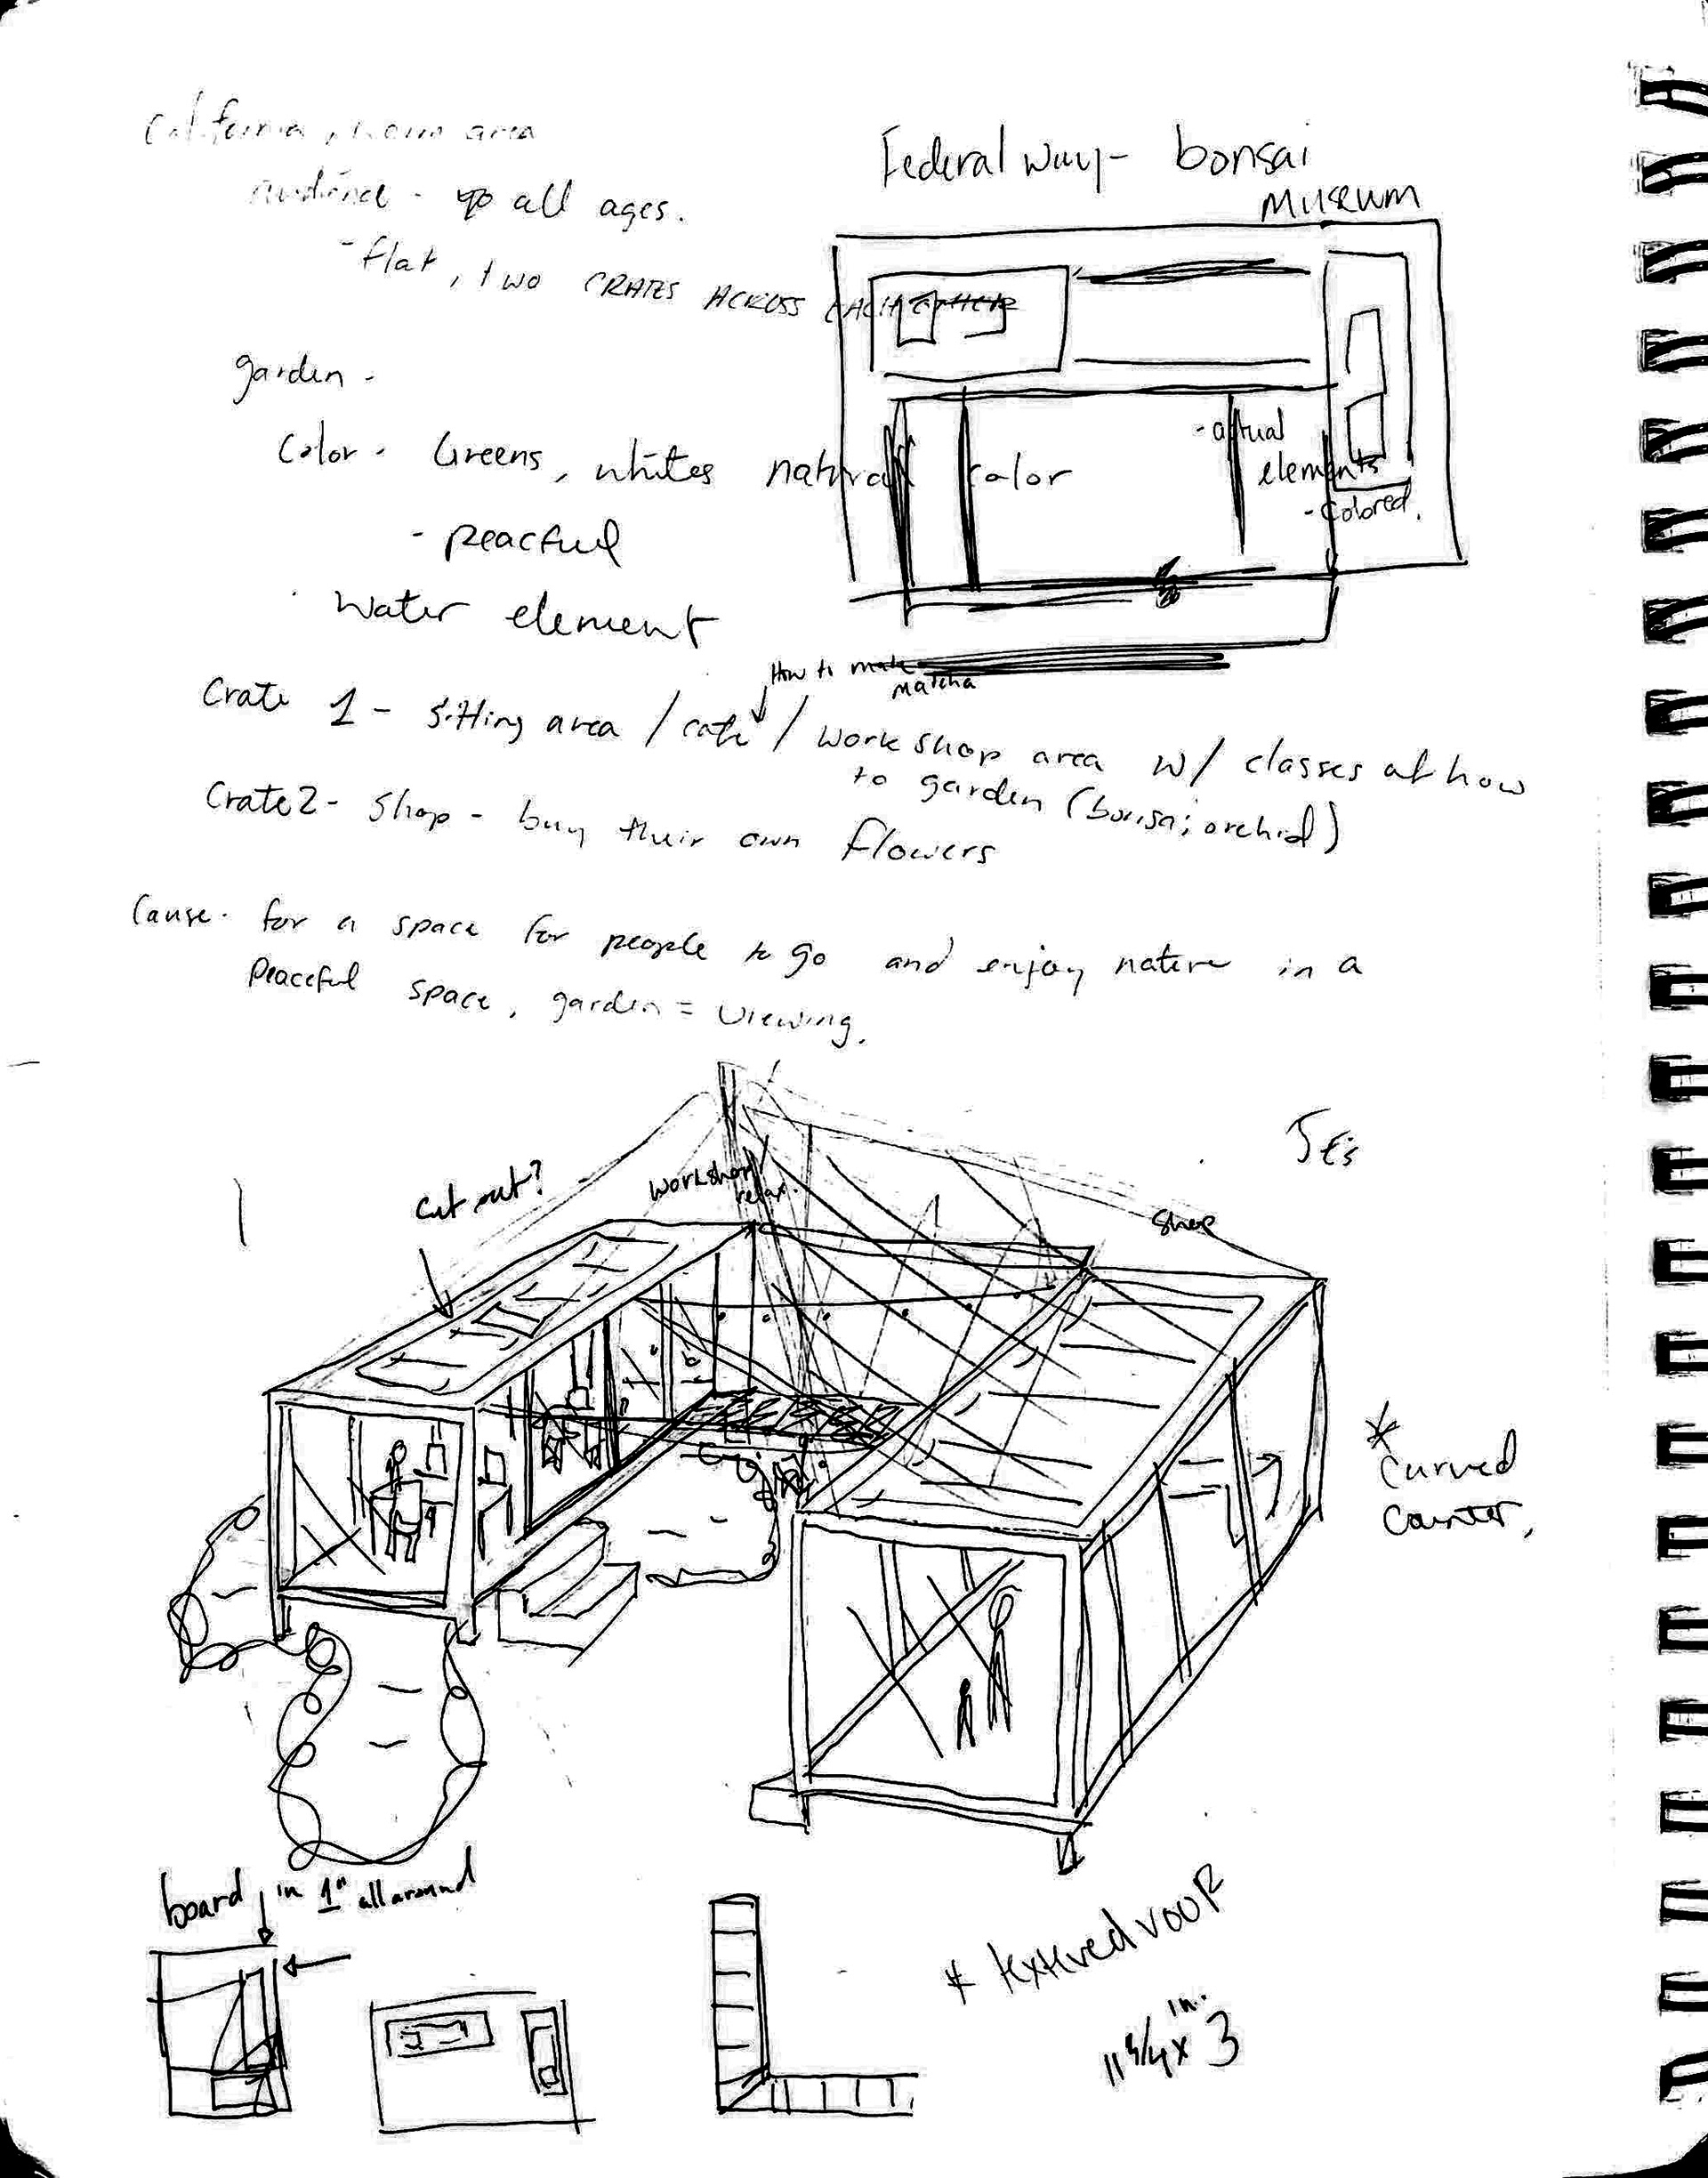 California, warm area
audience - all ages.
- flat, two CRATES ACROSS EACH OTHER
Federal Way - bonsai
Museum
garden -
Color - Greens, whites natural color
- peaceful
- actual
elements
- colored.
Water element
How to make
matcha
Crate 1 - sitting area / cafe / workshop area w/ classes of how
to garden (bonsai; orchid)
Crate 2 - Shop - buy their own flowers
Cause - for a space for people to go and enjoy nature in a
Peaceful space, garden = viewing.
cut out?
workshop
relax.
Shop
* Curved
counter,
board in 1" all around
11 3/4 x 3 in.